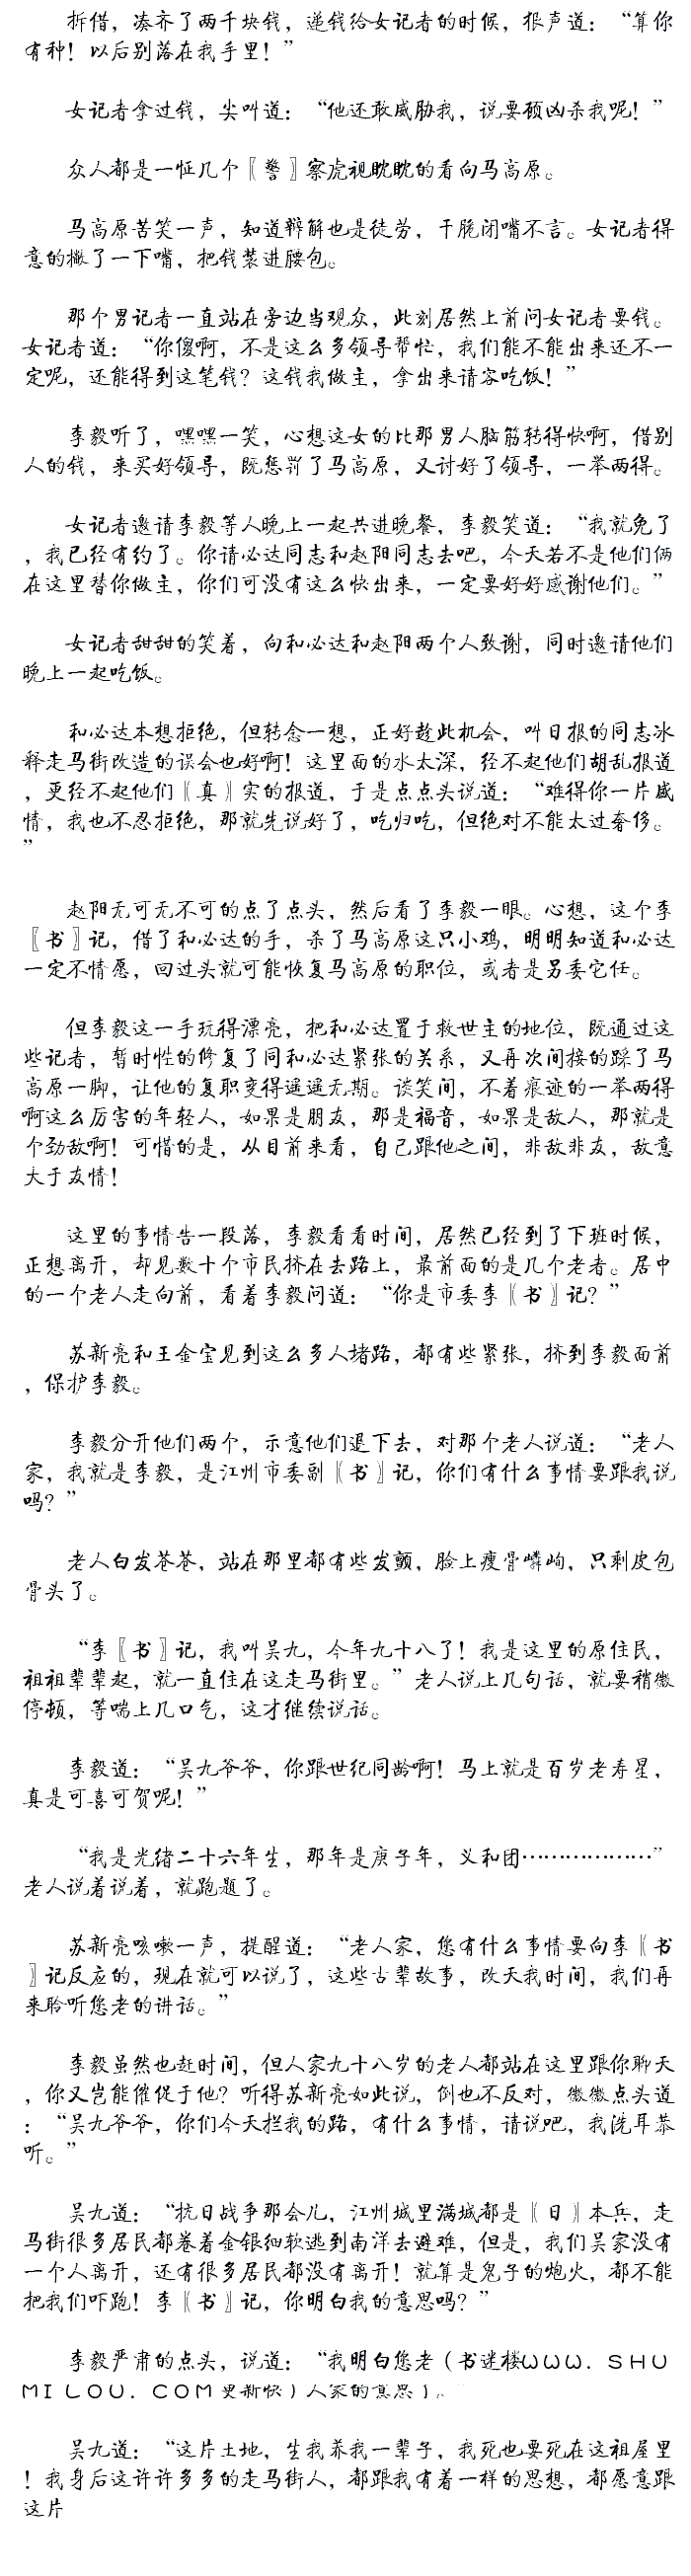 拆借，凑齐了两千块钱，递钱给女记者的时候，狠声道：“算你
有种！以后别落在我手里！”
女记者拿过钱，尖叫道：“他还敢威胁我，说要顾凶杀我呢！”
众人都是一怔几个〖警〗察虎视眈眈的看向马高原。
马高原苦笑一声，知道辩解也是徒劳，干脆闭嘴不言。女记者得
意的撇了一下嘴，把钱装进腰包。
那个男记者一直站在旁边当观众，此刻居然上前问女记者要钱。
女记者道：“你傻啊，不是这么多领导帮忙，我们能不能出来还不一
定呢，还能得到这笔钱？这钱我做主，拿出来请客吃饭！”
李毅听了，嘿嘿一笑，心想这女的比那男人脑筋转得快啊，借别
人的钱，来买好领导，既惩罚了马高原，又讨好了领导，一举两得。
女记者邀请李毅等人晚上一起共进晚餐，李毅笑道：“我就免了
，我已经有约了。你请必达同志和赵阳同志去吧，今天若不是他们俩
在这里替你做主，你们可没有这么快出来，一定要好好感谢他们。”
女记者甜甜的笑着，向和必达和赵阳两个人致谢，同时邀请他们
晚上一起吃饭。
和必达本想拒绝，但转念一想，正好趁此机会，叫日报的同志冰
释走马街改造的误会也好啊！这里面的水太深，经不起他们胡乱报道
，更经不起他们〖真〗实的报道，于是点点头说道：“难得你一片盛
情，我也不忍拒绝，那就先说好了，吃归吃，但绝对不能太过奢侈。
”
赵阳无可无不可的点了点头，然后看了李毅一眼。心想，这个李
〖书〗记，借了和必达的手，杀了马高原这只小鸡，明明知道和必达
一定不情愿，回过头就可能恢复马高原的职位，或者是另委它任。
但李毅这一手玩得漂亮，把和必达置于救世主的地位，既通过这
些记者，暂时性的修复了同和必达紧张的关系，又再次间接的踩了马
高原一脚，让他的复职变得遥遥无期。谈笑间，不着痕迹的一举两得
啊这么厉害的年轻人，如果是朋友，那是福音，如果是敌人，那就是
个劲敌啊！可惜的是，从目前来看，自己跟他之间，非敌非友，敌意
大于友情！
这里的事情告一段落，李毅看看时间，居然已经到了下班时候，
正想离开，却见数十个市民挤在去路上，最前面的是几个老者。居中
的一个老人走向前，看着李毅问道：“你是市委李〖书〗记？”
苏新亮和王金宝见到这么多人堵路，都有些紧张，挤到李毅面前
，保护李毅。
李毅分开他们两个，示意他们退下去，对那个老人说道：“老人
家，我就是李毅，是江州市委副〖书〗记，你们有什么事情要跟我说
吗？”
老人白发苍苍，站在那里都有些发颤，脸上瘦骨嶙峋，只剩皮包
骨头了。
“李〖书〗记，我叫吴九，今年九十八了！我是这里的原住民，
祖祖辈辈起，就一直住在这走马街里。”老人说上几句话，就要稍微
停顿，等喘上几口气，这才继续说话。
李毅道：“吴九爷爷，你跟世纪同龄啊！马上就是百岁老寿星，
真是可喜可贺呢！”
“我是光绪二十六年生，那年是庚子年，义和团………………”
老人说着说着，就跑题了。
苏新亮咳嗽一声，提醒道：“老人家，您有什么事情要向李〖书
〗记反应的，现在就可以说了，这些古辈故事，改天我时间，我们再
来聆听您老的讲话。”
李毅虽然也赶时间，但人家九十八岁的老人都站在这里跟你聊天
，你又岂能催促于他？听得苏新亮如此说，倒也不反对，微微点头道
：“吴九爷爷，你们今天拦我的路，有什么事情，请说吧，我洗耳恭
听。”
吴九道：“抗日战争那会儿，江州城里满城都是〖日〗本兵，走
马街很多居民都卷着金银细软逃到南洋去避难，但是，我们吴家没有
一个人离开，还有很多居民都没有离开！就算是鬼子的炮火，都不能
把我们吓跑！李〖书〗记，你明白我的意思吗？”
李毅严肃的点头，说道：“我明白您老（书迷楼ＷＷＷ．ＳＨＵ
ＭＩＬＯＵ．ＣＯＭ更新快）人家的意思）。
吴九道：“这片土地，生我养我一辈子，我死也要死在这祖屋里
！我身后这许许多多的走马街人，都跟我有着一样的思想，都愿意跟
这片